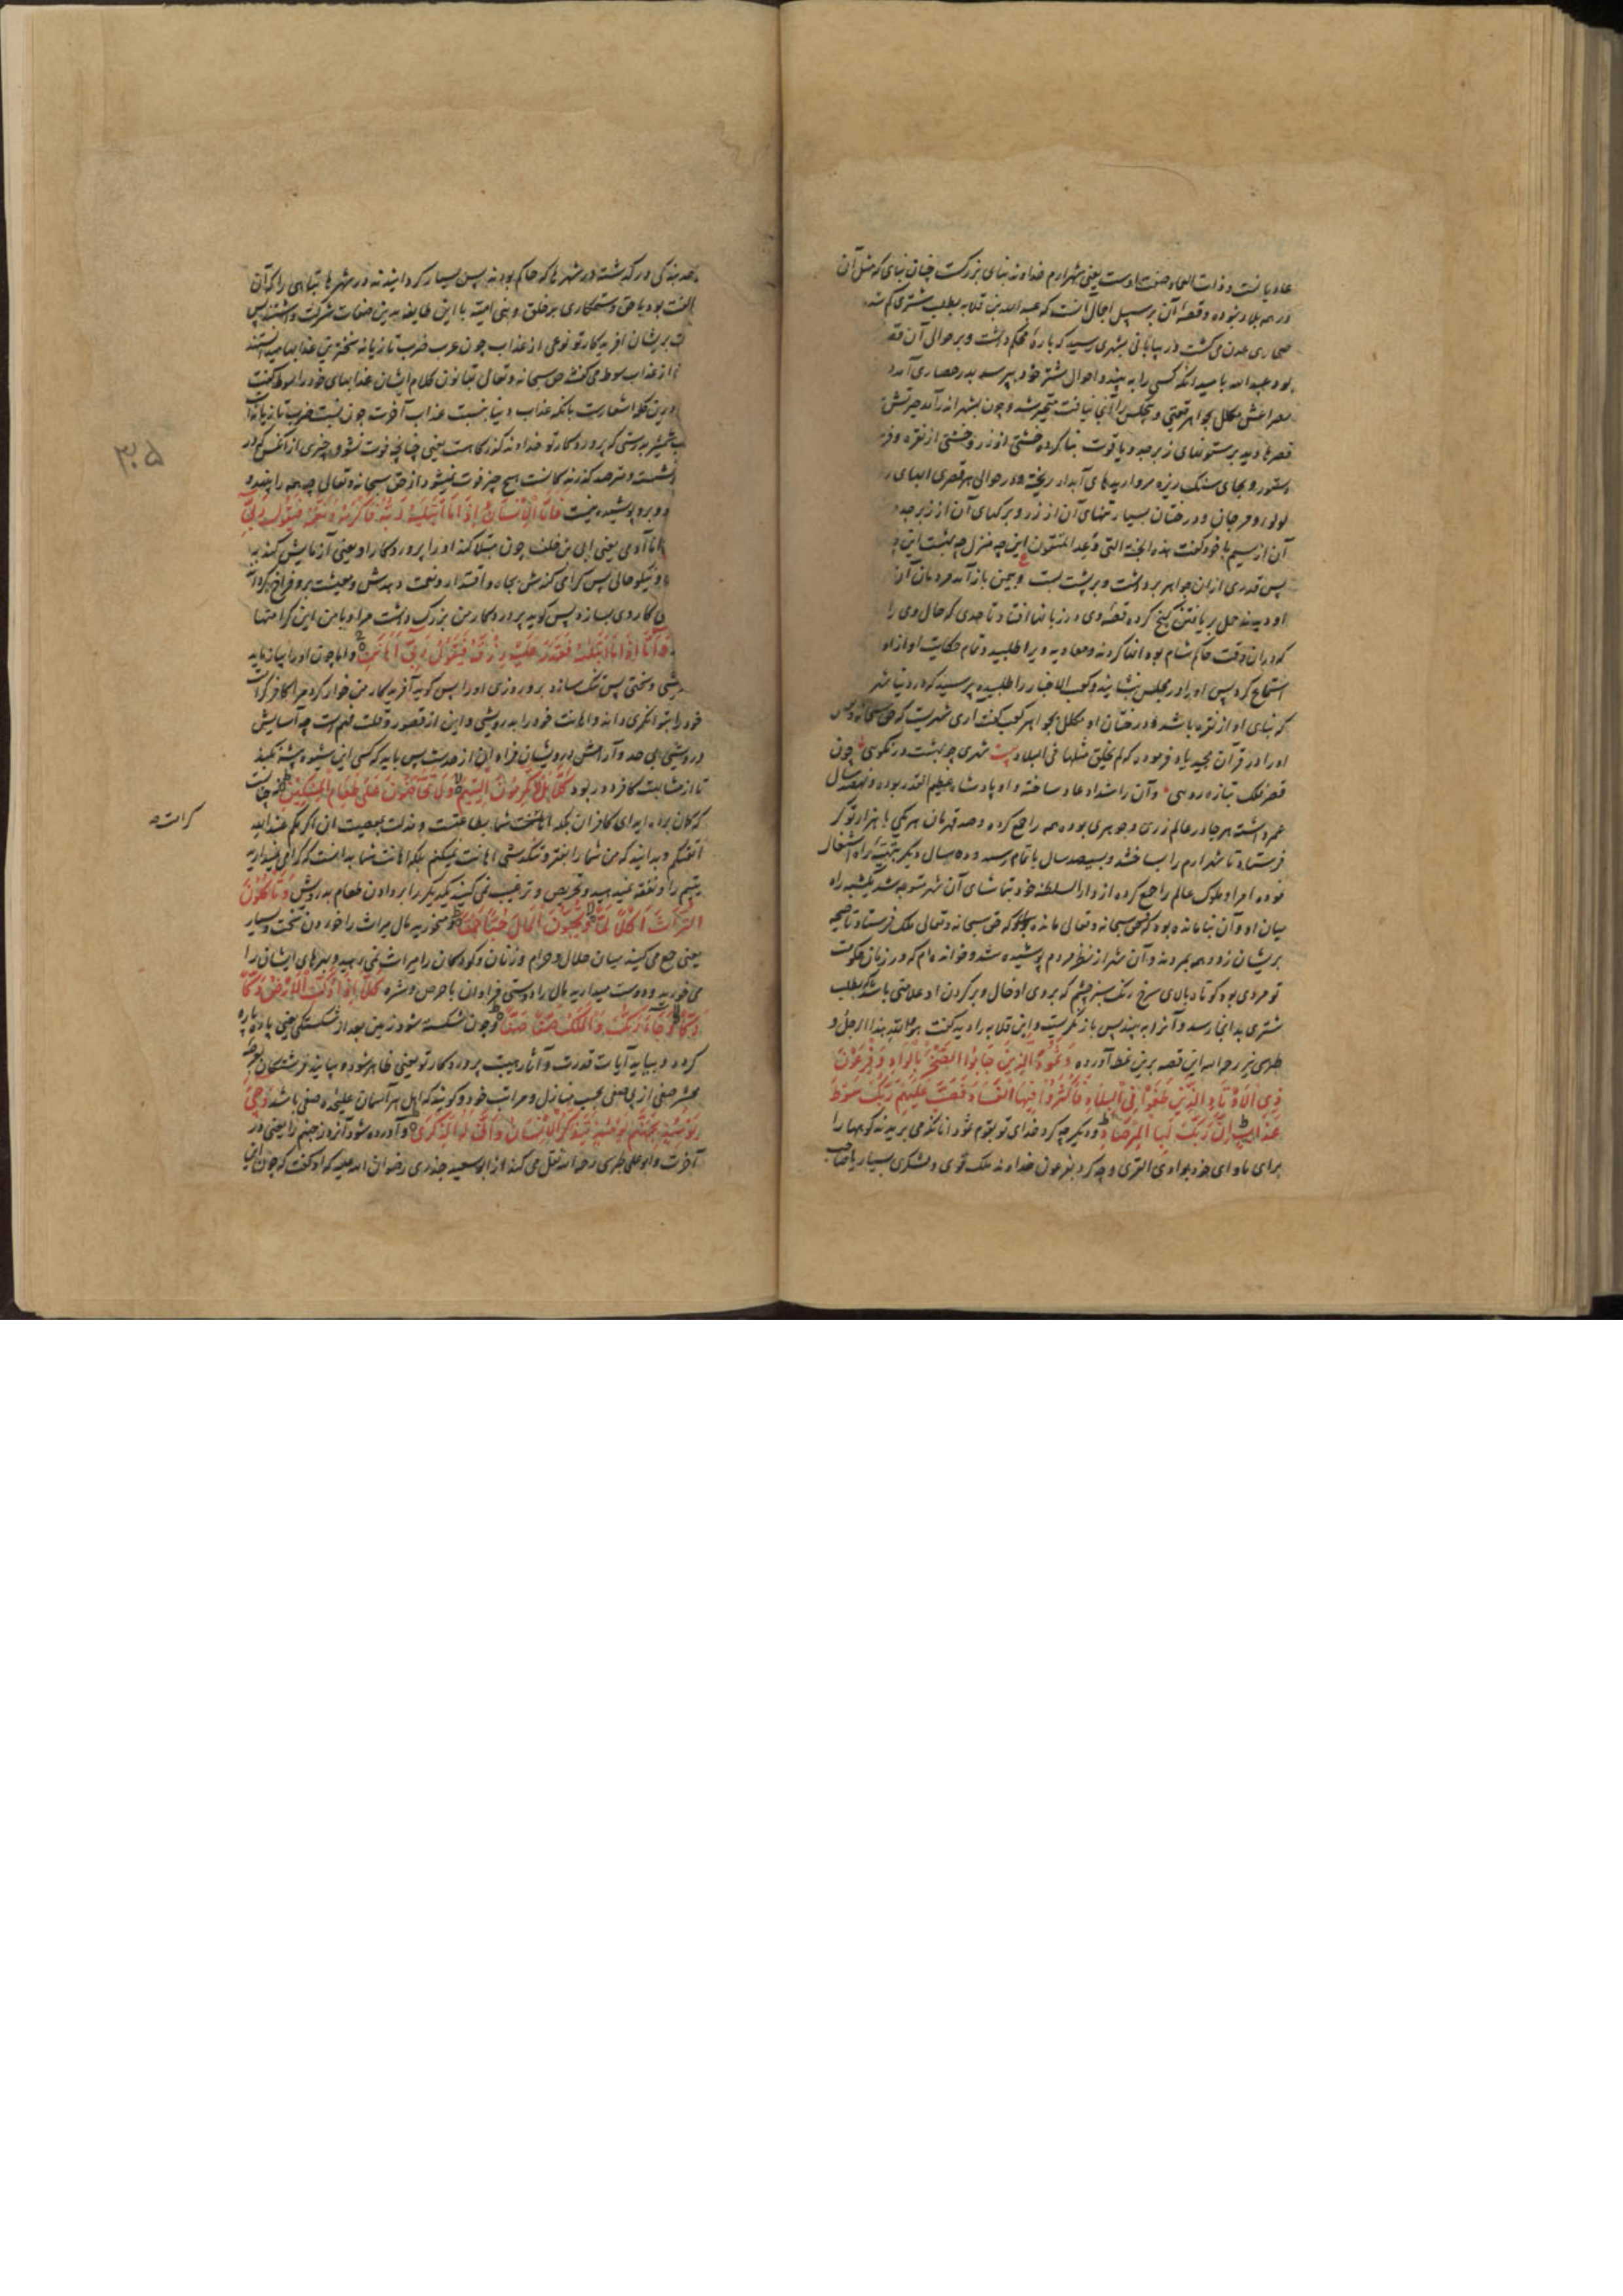 عاد یا نست و ذات العماد صفت اوست یعنی شهر ارم خداوند بنای بزرگست چنان بنای که مثل آن
در همه بلاد نبوده و قصهٔ آن بر سبیل اجمال آنست که عبد الله بن قلابه بطلب شتری کم شده
صحاری عدن می کشت در بیابانی بشهری رسید که بارهٔ محکم داشت و بر حوالی آن قصر
بود عبد الله بامید آنکه کسی را به بیند و احوال شتر خود بپرسد بدر حصار آمد
مصراعش مکلل بجواهر قیمتی و هیچکس را آنجا نیافت متحیر شد و چون بشهر اندر آمد حیرتش
قصرها دید بر ستونهای زبرجد و یاقوت بنا کرده خشتی از زر و خشتی از نقره و فرش
دستور و بجای سنک ریزه مرواریدهای آبدار ریخته و در حوالی هر قصری آبهای
لولو و مرجان و درختان بسیار تنهای آن از زر و برکهای آن از زبرجد و
آن از سیم با خود کفت هذه الجنة التی وعد المتقون این چه منزل چه بهشت این
پس قدری از آن جواهر برداشت و بر پشت بست و بیمن باز آمد مردمان آن
او دیدند حمل بر یافتن کنج کرده قصهٔ وی در زبانها افتاد تا حدی که حال وی را
که دران وقت حاکم شام بود انها کردند و معاویه ویرا طلبید و تمام حکایت او از او
استماع کرد پس او را در مجلس بنشاند و کعب الاخبار را طلبیده پرسید که در دنیا شهر
که بنای او از نقره باشد و درختان او مکلل بجواهر کعب کفت آری شهریست که حق سبحانه و تعالی
او را در قرآن مجید یاد فرموده که لم یخلق مثلها فی البلاد بیت شهری چو بهشت در نکوی چون
قصر فلک تبازه روسی و آن را شداد عاد ساخته و او پادشاه عظیم القدر بوده و نهصد سال
عمر داشت هر جا در عالم زری و جوهری بوده همه را جمع کرده و صد قهرمان هر یکی با هزار نوکر
فرستاد تا شهر ارم را بساختند و بسیصد سال باتمام رسید و ده سال دیکر بتهیهٔ راه اشتغال
نموده امرا و ملوک عالم را جمع کرده از دار السلطنهٔ خود بتماشای آن شهر متوجه شد یکشبه راه
میان او و آن بنا مانده بود که حق سبحانه و تعالی ملک فرستاد تا صیحه
بر ایشان زد و همه بمردند و آن شهر از نظر مردم پوشیده شد و خوانده ام که در زمان حکومت
تو مردی بود کوتاه بالای سرخ رنک سبز چشم که بر روی او خال و بر کردن او علامتی باشد بطلب
شتری بدانجا رسد و آنرا به بیند پس باز نکریست و ابن قلابه را دید کفت هو الله هذا الرجل و
طبری نیز رحمه الله این قصه برین نمط آورده وَثَمُودَ الَّذِینَ جَابُوا الصَّخْرَ بِالْوَادِ وَفِرْعَوْنَ
ذِی الْأَوْتَادِ الَّذِینَ طَغَوْا فِی الْبِلَادِ فَأَکْثَرُوا فِیهَا الْفَسَادَ فَصَبَّ عَلَیْهِمْ رَبُّکَ سَوْطَ
عَذَابٍ إِنَّ رَبَّکَ لَبِالْمِرْصَادِ و دیکر چه کرد خدای تو بقوم ثمود آنانکه می بریدند کوهها را
برای ماوای خود بوادی القری و چه کرد بفرعون خداوند ملک قوی و لشکری بسیار یا صاحب
حد بندکی در کذشتند در شهرها که حاکم بودند پس بسیار کردانیدند در شهرها تباهی را که آن
الفت بود یا حق و ستمکاری بر خلق و بنی امیه با این طایفه بدین صفات شرکت داشتند پس
بر ایشان آفریدکار تو نوعی از عذاب چون عرب ضرب تازیانه سخترین عذابها میدانستند
از عذاب سوط می کفتند حق سبحانه و تعالی بقانون کلام ایشان عذابهای خود را سوط کفت
درین کلمه اشعارست بانکه عذاب دنیا بنسبت عذاب آخرت چون نسبت ضرب تازیانه است
بشمشیر بدرستی که پروردکار تو خداوند کذرکاهست یعنی چنانچه فوت نشود چیزی از آنکس که در
نشست و مترصد کذرندکانست هیچ چیز فوت نمیشود از حق سبحانه و تعالی چه همه را بیند و
و برو پوشیده نیست فَأَمَّا الْإِنْسَانُ إِذَا مَا ابْتَلَاهُ رَبُّهُ فَأَکْرَمَهُ وَنَعَّمَهُ فَیَقُولُ رَبِّی
اما آدمی یعنی ابی بن خلف چون مبتلا کند او را پروردکار او یعنی آزمایش کند به
و نیکو حالی پس کرامی کندش بجاه و اقتدار و نعمت دهدش و معیشت برو فراخ کرداند
کار وی بسازد پس کوید پروردکار من بزرک داشت مرا و با من این کرامتها
وَأَمَّا إِذَا مَا ابْتَلَاهُ فَقَدَرَ عَلَیْهِ رِزْقَهُ فَیَقُولُ رَبِّی أَهَانَنِ و اما چون او را بیازماید
و سختی پس تنک سازد برو روزی او را پس کوید آفریدکار من خوار کرد مرا کافر کرامت
خود را بتوانکری داند و اهانت خود را بدرویشی و این از قصور و قلت فهمست چه آسایش
درویشی بی حد و آرامش درویشان فراوان از حدست پس باید که کسی این شیوه پیشه نکند
تا از مشابهت کافر دور بود کَلَّا بَلْ لَا تُکْرِمُونَ الْیَتِیمَ وَلَا تَحَاضُّونَ عَلَی طَعَامِ الْمِسْکِینِ نه چنانست
که کمان برده اید ای کافران بلکه شما بطاعتست و مذلت بمعصیت ان اکرمکم عند الله
اتقیکم و بدانید که من شما را بفقر و تنکدستی اهانت نمیکنم بلکه اهانت شما بدانست که کرامی نمیدارید
یتیم را و نفقه نمیدهید و تحریص و ترغیب نمی کنید یکدیکر را بر دادن طعام بدرویش وَتَأْکُلُونَ
التُّرَاثَ أَکْلًا لَمًّا وَتُحِبُّونَ الْمَالَ حُبًّا جَمًّا و میخورید مال میراث را خوردن سخت و بسیار
یعنی جمع می کنید میان حلال و حرام و زنان و کودکان را میراث نمی دهید و بهرهای ایشان را
می خورید و دوست میدارید مال را دوستی فراوان با حرص و شره کَلَّا إِذَا دُکَّتِ الْأَرْضُ دَکًّا
دَکًّا وَجَاءَ رَبُّکَ وَالْمَلَکُ صَفًّا صَفًّا و چون شکسته شود زمین بعد از شکستکی یعنی پاره پاره
کردد و بیاید آیات قدرت و آثار هیبت پروردکار تو یعنی ظاهر شود و بیایند فرشتکان بعرصهٔ
محشر صفی از پی صفی بحسب منازل و مراتب خود و کویند که اهل هر آسمان علیحده صفی باشد وَجِیءَ
یَوْمَئِذٍ بِجَهَنَّمَ یَوْمَئِذٍ یَتَذَکَّرُ الْإِنْسَانُ وَأَنَّی لَهُ الذِّکْرَی و آورده شود آنروز جهنم را یعنی در
آخرت و ابو علی طبرسی رحمه الله نقل می کند از ابو سعید خدری رضوان الله علیه که او کفت که چون این
۳۰۵
کرامت